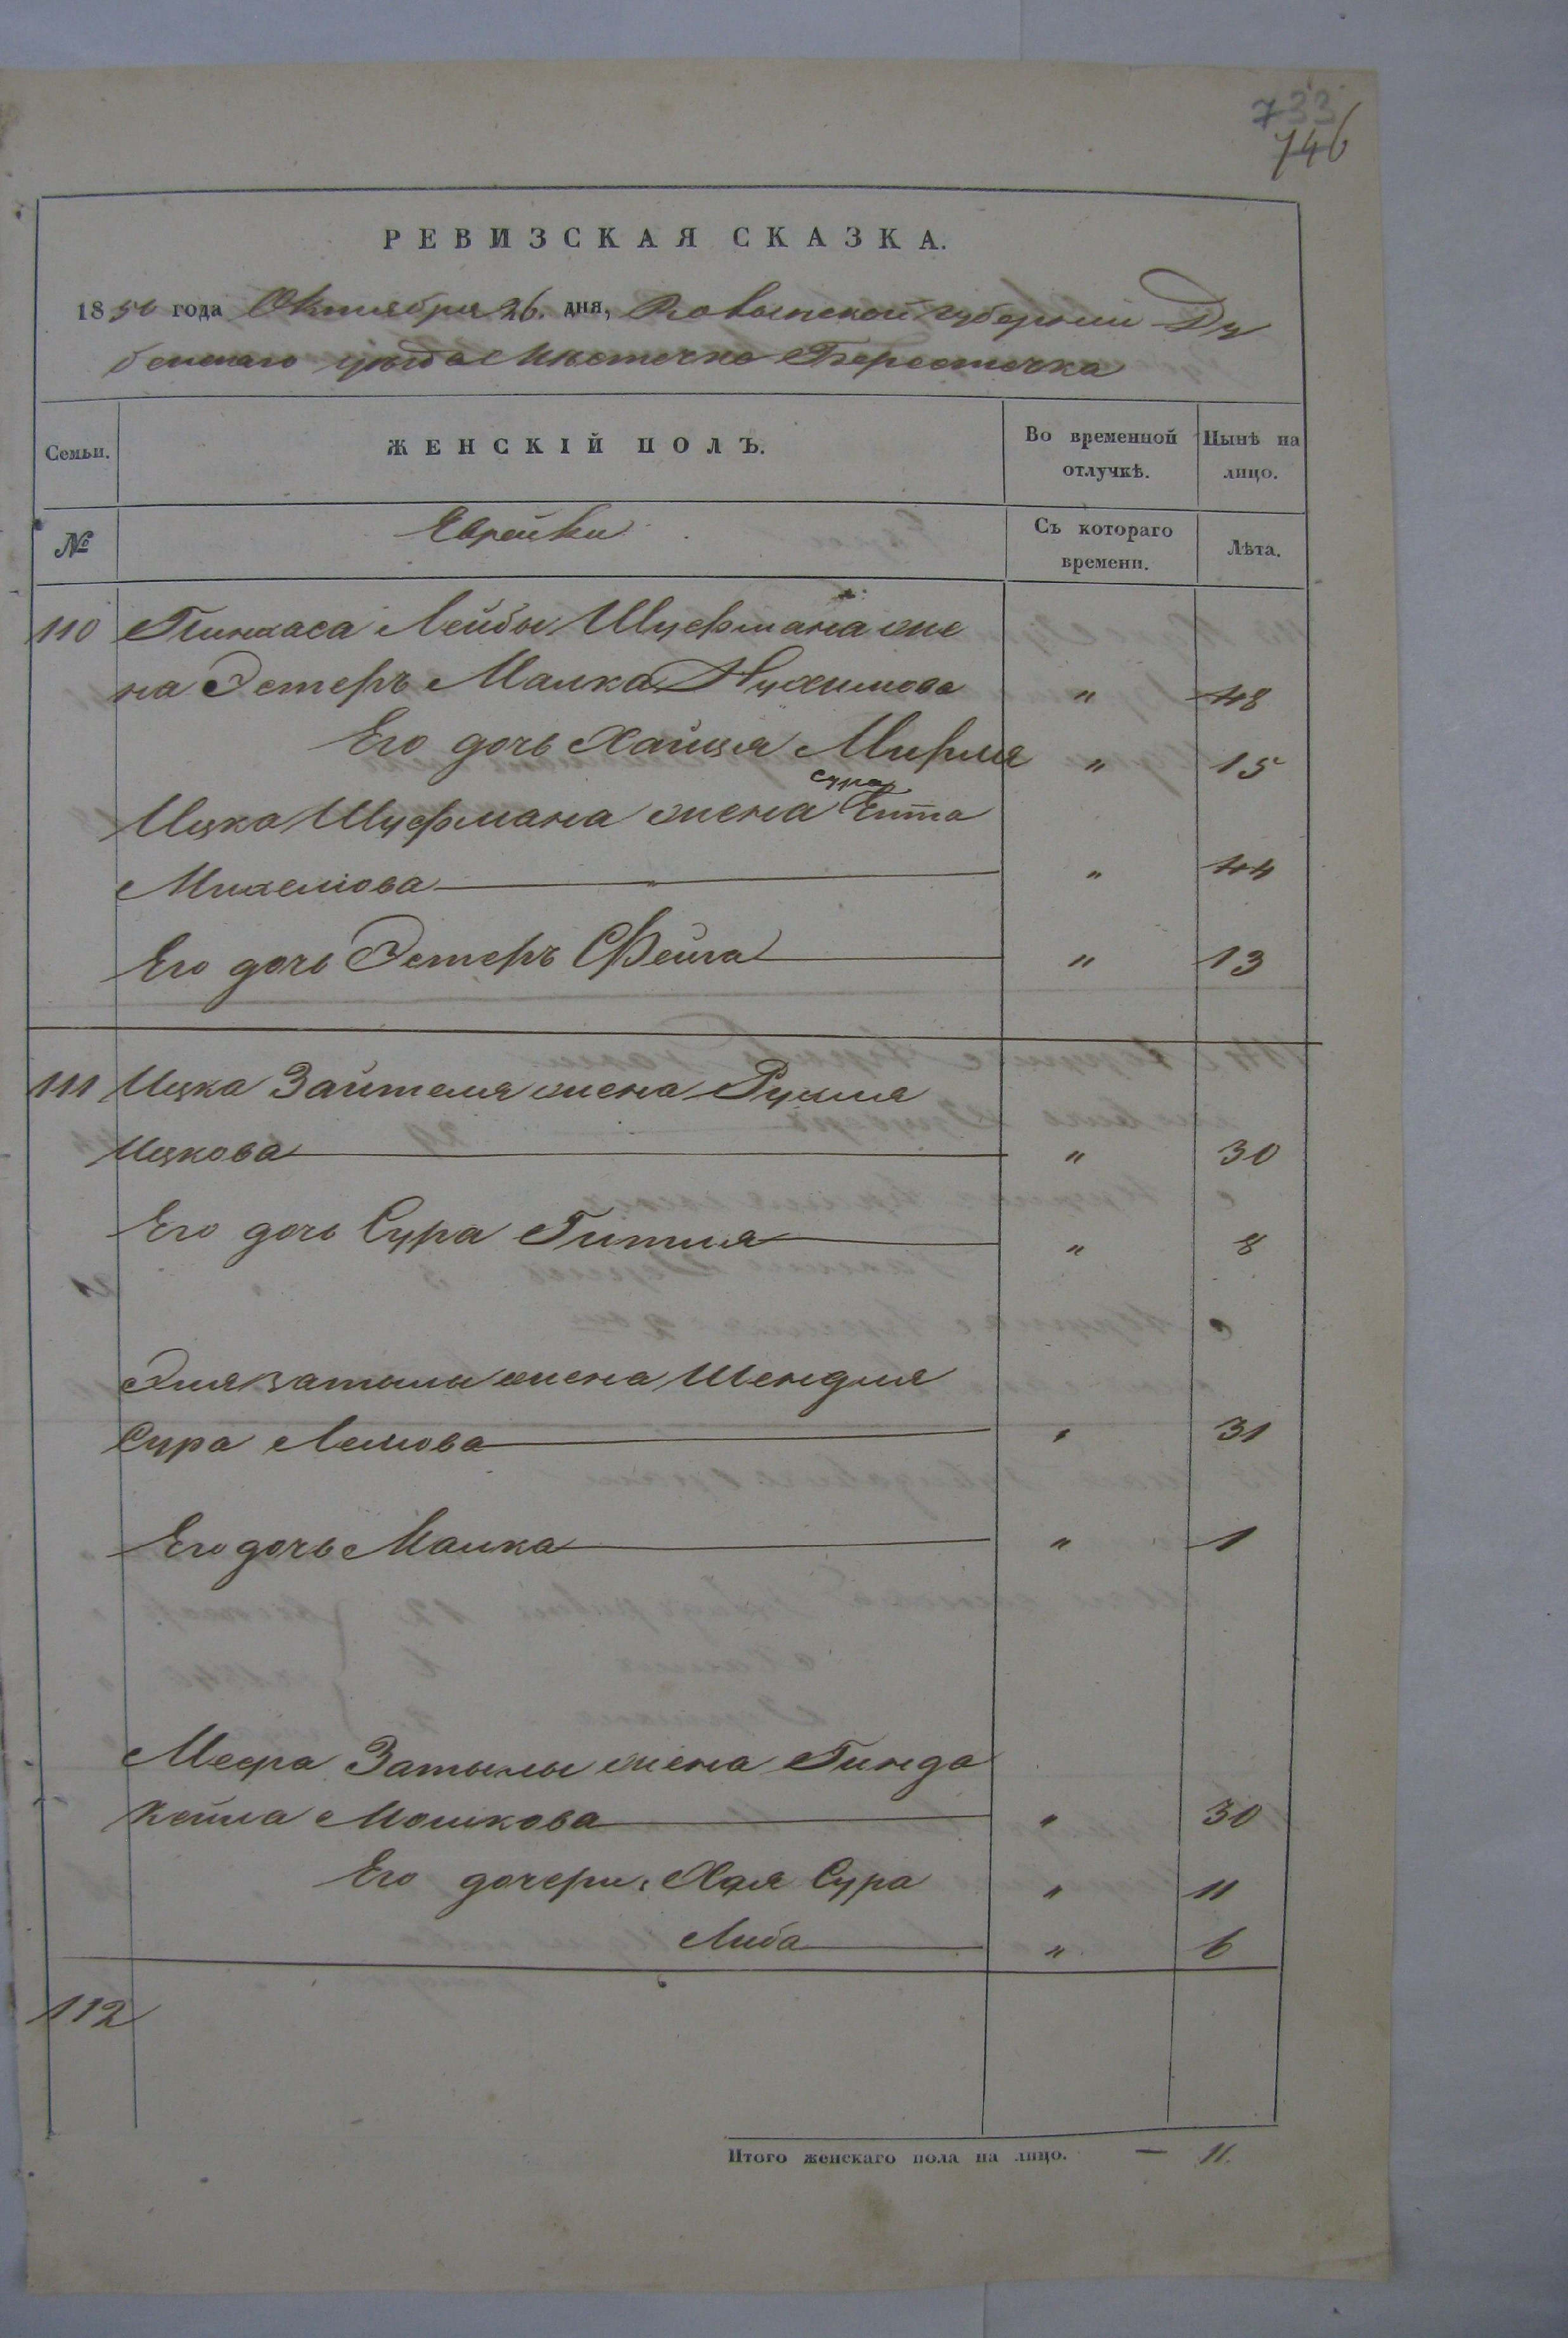 733
746
РЕВИЗСКАЯ СКАЗКА.
1850 года Октября 26. дня, Волынской губернии Ду
бенскаго уѣзда Мѣстечка Берестечка
Семьи.
ЖЕНСКІЙ ПОЛЪ.
Во временной отлучкѣ.
Нынѣ на лицо.
№
Еврейки
Съ котораго времени.
Лѣта.
110 Пинхаса Лейбы Шуфмана же
на Эстеръ Малка Нухимова " 48
Его дочь Хайця Мирля " 15
Сура
Ицка Шуфмана жена Ента
Михелiова " 44
Его дочь Эстеръ Фейга " 13
111 Ицка Зайтеля жена Рухля
Ицкова " 30
Его дочь Сура Гитля " 8
Эля Затылы жена Шендля
Сура Лейбова " 31
Его дочь Малка " 1
Меера Затылы жена Гинда
Кейла Мошкова " 30
Его дочери: Хая Сура " 11
Либа " 6
112
Итого женскаго пола на лицо. — 11.